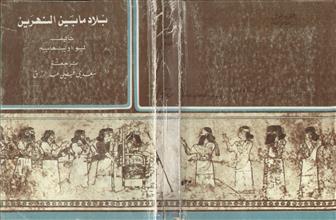 بلاد ما بين النهرين
تأليف
ليو اوبنهايم
ترجمة
سعدي فيضي عبد الرزاق